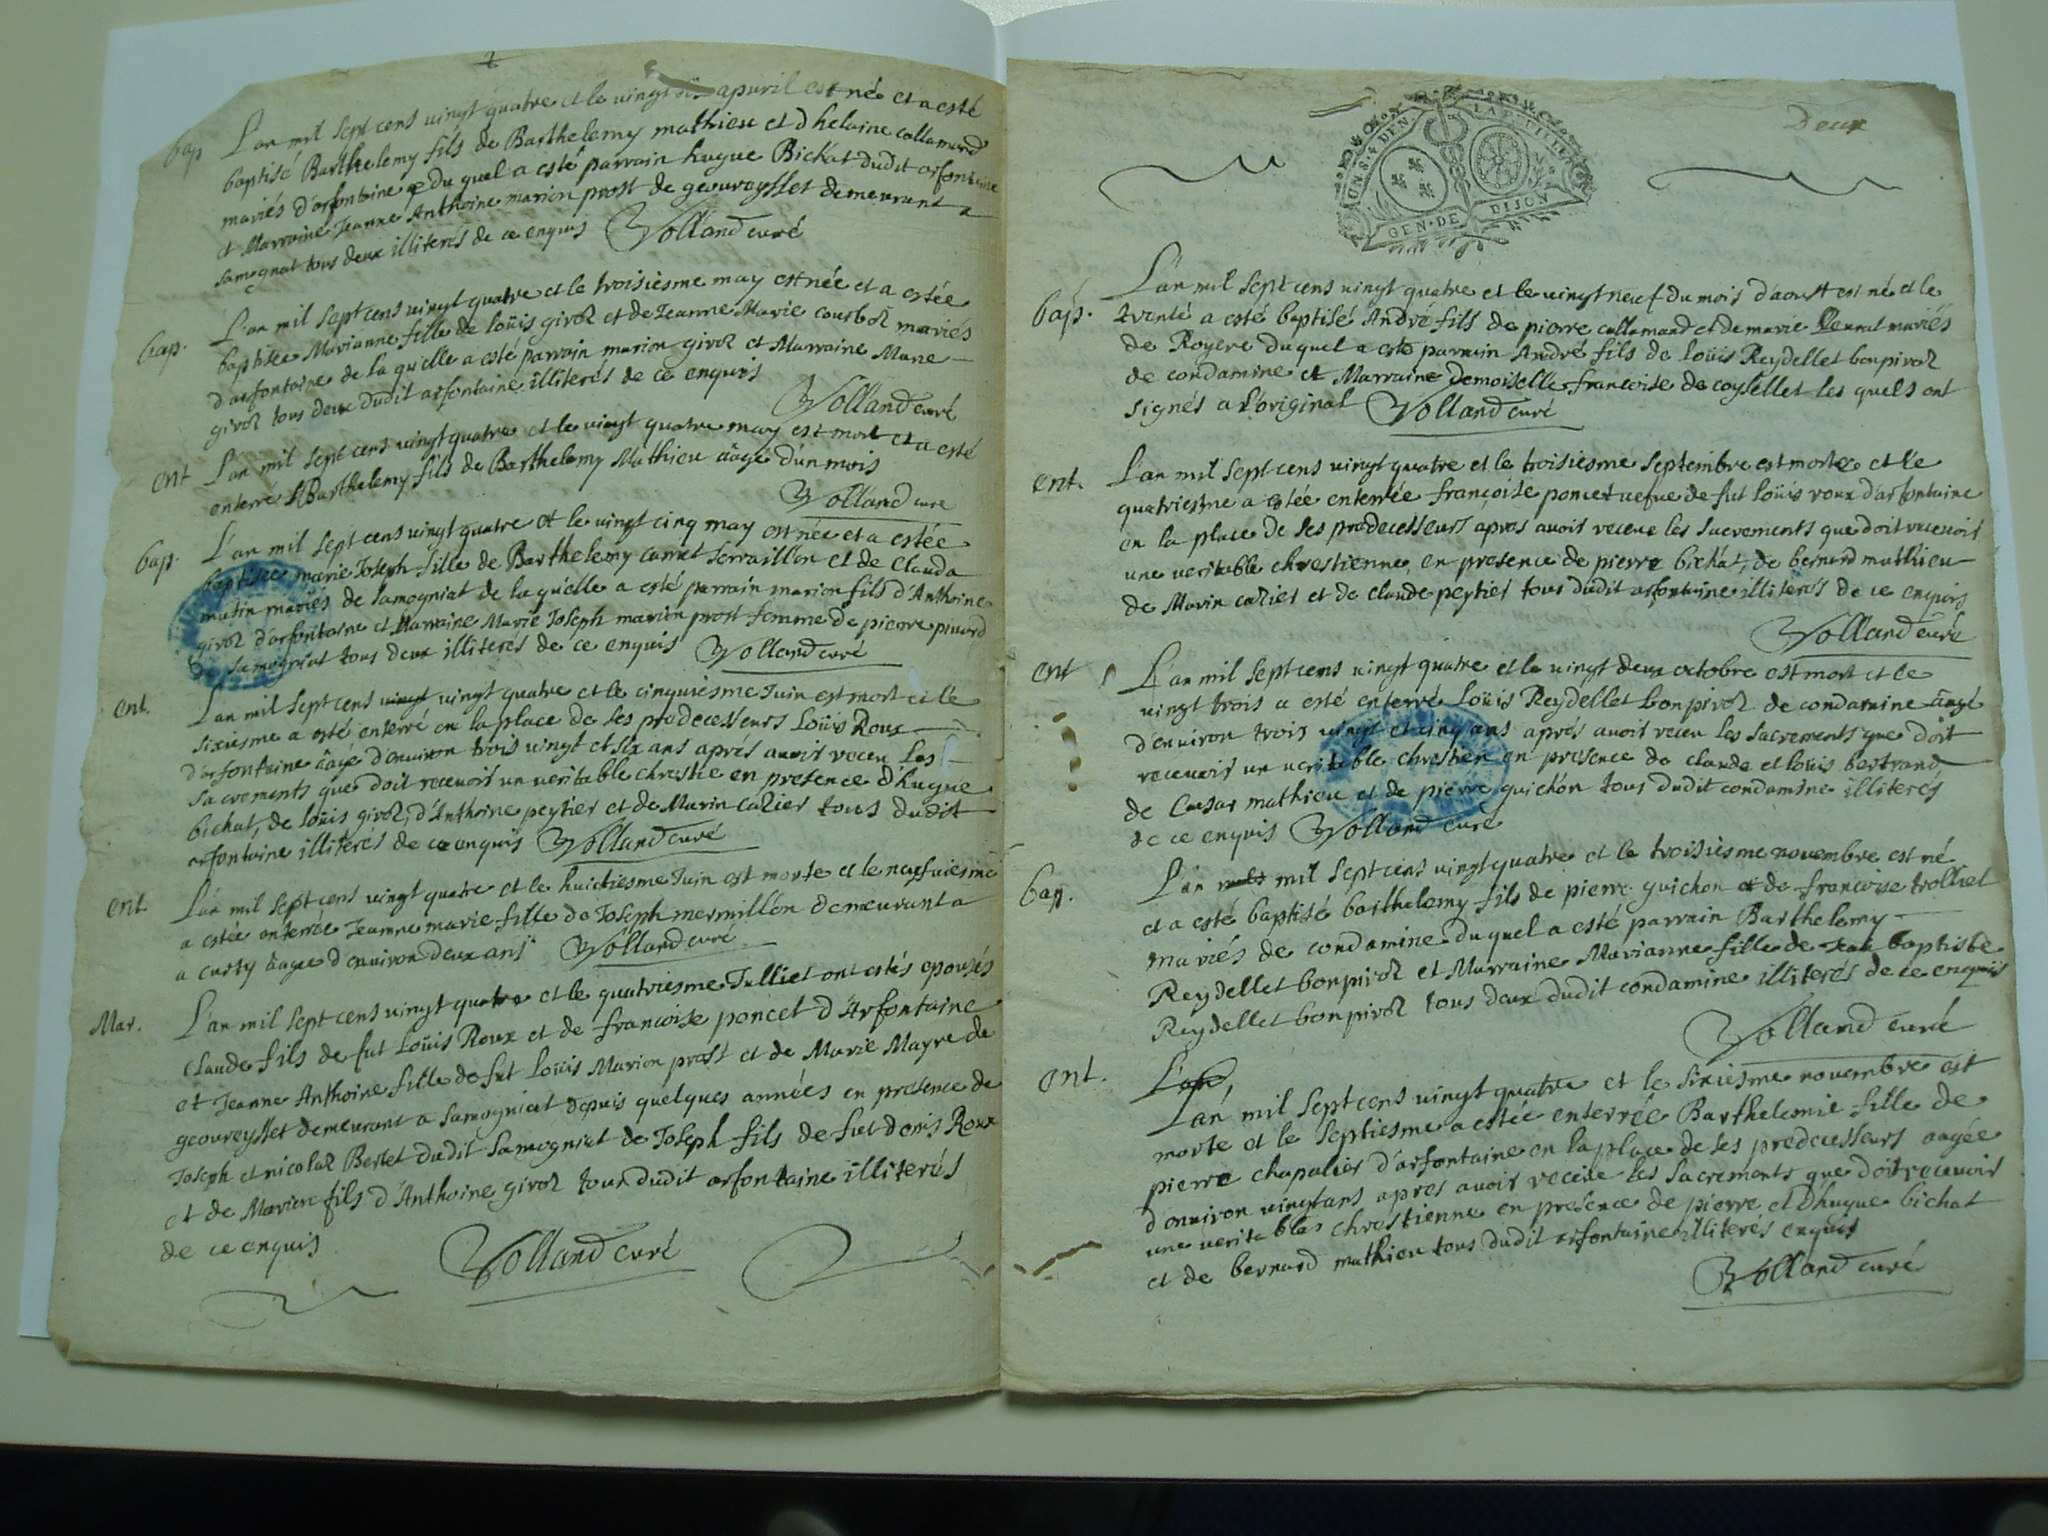 bap
L'an mil sept cens vingt quatre et le vingt apuril est né et a esté
baptisé Barthelemy fils de Barthelemy mathieu et d'helaine callamard
mariés d'arfontaine duquel a esté parrain hugue Bichat dudit arfontaine
et Marraine Jeanne Anthoine marion prost de geoureysset demeurant a
samognat tous deux illiterés de ce enquis Volland curé
bap.
L'an mil sept cens vingt quatre et le troisiesme may est née et a estée
baptisée Marianne fille de loüis girod et de Jeanne Marie courbot mariés
d'arfontaine de laquelle a esté parrain marion girod et Marraine Marie
girod tous deux dudit arfontaine illiterés de ce enquis
Volland curé
ent
L'an mil sept cens vingt quatre et le vingt quatre may est mort et a esté
enterré Barthelemy fils de Barthelemy Mathieu âagé d'un mois
Volland cure
bap.
L'an mil sept cens vingt quatre et le vingt cinq may est née et a estée
baptisée marie Joseph fille de Barthelemy carret serraillon et de Clauda
mutin mariés de samogniat de laquelle a esté parrain marion fils d'Anthoine
girod d'arfontaine et Marraine Marie Joseph marion prost femme de pierre piuard
de samogniat tous deux illiterés de ce enquis Volland curé
ent.
L'an mil sept cens vingt vingt quatre et le cinquiesme Juin est mort et le
sixiesme a esté enterré en la place de ses predecesseurs Loüis Roux
d'arfontaine âagé d'enuiron trois vingt et six ans aprés auoir receu les
sacrements que doit receuoir un ueritable chrestie en presence d'hugue
bichat, de loüis girod, d'Anthoine peytier et de Marin cazier tous dudit
arfontaine illiterés de ce enquis Volland curé
ent.
L'an mil sept cens vingt quatre et le huictiesme Juin est morte et le neufuiesme
a estée enterrée Jeanne marie fille de Joseph mermillon demeurant a
a custy âagée d'enuiron deux ans Volland curé
Mar.
L'an mil sept cens vingt quatre et le quatriesme Julliet ont estés epousés
claude fils de fut Loüis Roux et de francoise poncet d'Arfontaine
et Jeanne Anthoine fille de fut Loüis Marion prost et de Marie Mayre de
geoureysset demeurant a samogniat depuis quelques années en presence de
Joseph et nicolaz Bertet dudit samogniat de Joseph fils de fut denis Roux
et de Mariere fils d'Anthoine girod tous dudit arfontaine illiterés
de ce enquis
Volland curé
Deux
GEN·DE DIJON
bap.
L'an mil sept cens vingt quatre et le vingt neuf du mois d'aoust est né et le
trente a esté baptisé André fils de pierre callamard et de marie mariés
de Royere duquel a esté parrain André fils de loüis Reydellet bonpivoz
de condamine et Marraine Demoiselle francoise de coysellet les quels ont
signés a l'original Volland curé
ent.
L'an mil sept cens vingt quatre et le troisiesme septembre est morte et le
quatriesme a estée enterrée francoise poncet uefue de fut loüis roux d'arfontaine
en la place de ses predecesseurs apres auoir receue les sacrements que doit receuoir
une ueritable chrestienne en presence de pierre bichat, de bernard mathieu
de Marin cazier et de claude peytier tous dudit arfontaine illiterés de ce enquis
Volland curé
ent
L'an mil sept cens vingt quatre et le vingt deux octobre est mort et le
vingt trois a esté enterré Loüis Reydellet bonpivoz de condamine âagé
d'enuiron trois vingt et cinq ans aprés auoir receu les sacrements que doit
receuoir un ueritable chrestien en presence de claude et loüis bertrand
de Cæsar mathieu et de pierre guichon tous dudit condamine illiterés
de ce enquis Volland curé
bap.
L'an mil mil sept cens vingt quatre et le troisiesme novembre est né
et a esté baptisé barthelemy fils de pierre guichon et de francoise trolliet
mariés de condamine duquel a esté parrain Barthelemy
Reydellet bonpivoz et Marraine Marianne fille de Jean baptiste
Reydellet bonpivoz tous deux dudit condamine illiterés de ce enquis
Volland curé
ent.
L'an
L'an mil sept cens vingt quatre et le sixiesme novembre est
morte et le septiesme a estée enterrée Barthelemie fille de
pierre chapalier d'arfontaine en la place de ses predecesseurs aagée
d'enuiron vingt ans apres auoir receue les sacrements que doit receuoir
une ueritable chrestienne en presence de pierre et d'hugue bichat
et de bernard mathieu tous dudit arfontaine illiterés enquis
Volland curé